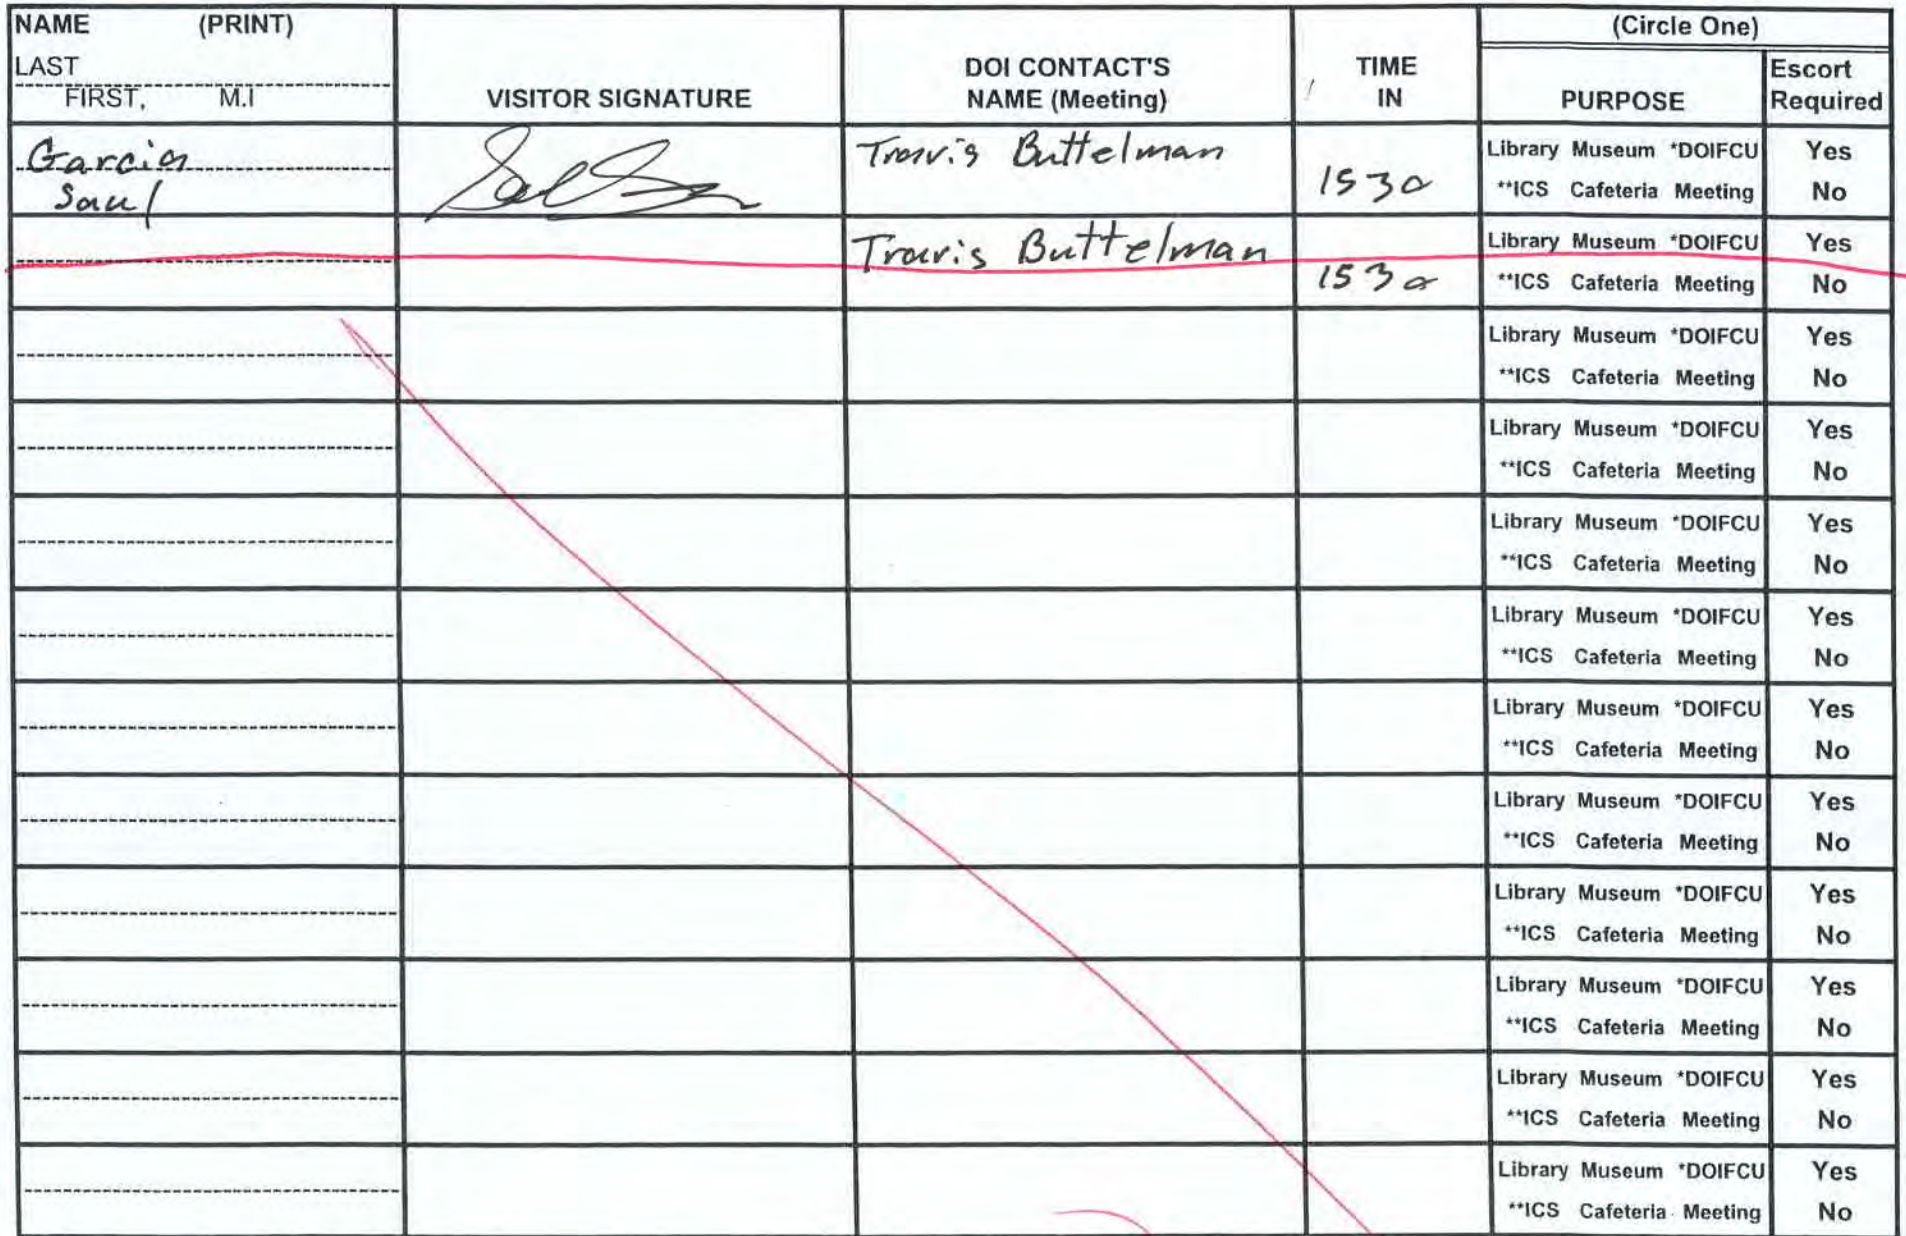 NAME (PRINT)
LAST
FIRST, M.I
VISITOR SIGNATURE
DOI CONTACT'S
NAME (Meeting)
TIME
IN
(Circle One)
PURPOSE
Escort
Required
Garcia
Saul
Travis Buttelman
1530
Library Museum *DOIFCU Yes
**ICS Cafeteria Meeting No
Travis Buttelman
1530
Library Museum *DOIFCU Yes
**ICS Cafeteria Meeting No
Library Museum *DOIFCU Yes
**ICS Cafeteria Meeting No
Library Museum *DOIFCU Yes
**ICS Cafeteria Meeting No
Library Museum *DOIFCU Yes
**ICS Cafeteria Meeting No
Library Museum *DOIFCU Yes
**ICS Cafeteria Meeting No
Library Museum *DOIFCU Yes
**ICS Cafeteria Meeting No
Library Museum *DOIFCU Yes
**ICS Cafeteria Meeting No
Library Museum *DOIFCU Yes
**ICS Cafeteria Meeting No
Library Museum *DOIFCU Yes
**ICS Cafeteria Meeting No
Library Museum *DOIFCU Yes
**ICS Cafeteria Meeting No
Library Museum *DOIFCU Yes
**ICS Cafeteria Meeting No